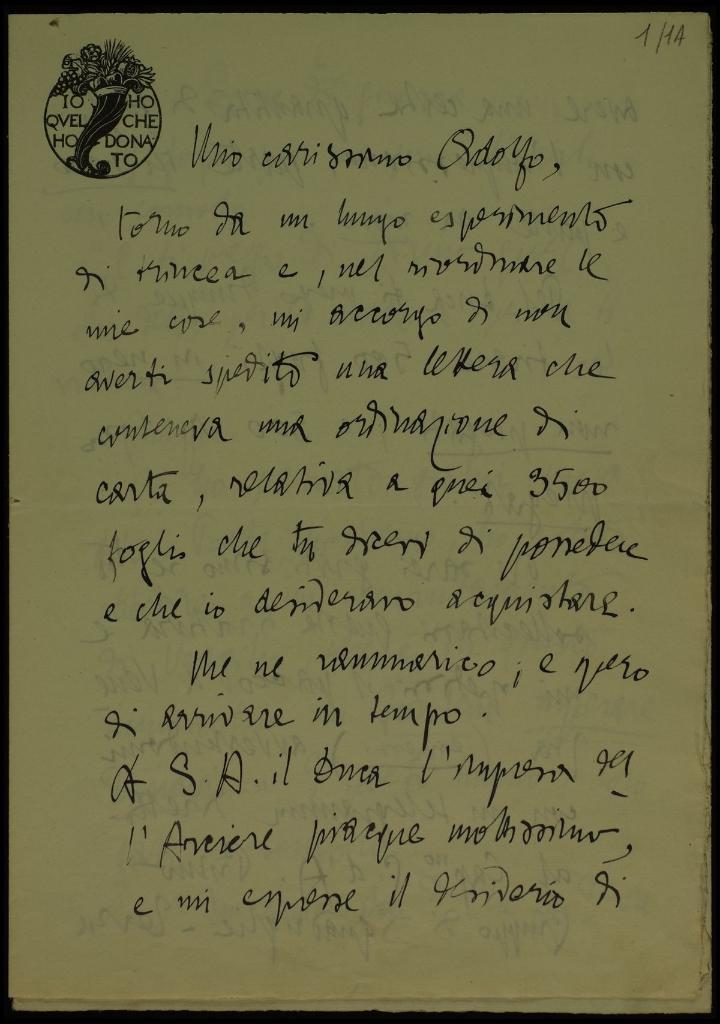 1/1A
IO HO
QVEL CHE
HO DONA
TO
Mio carissimo Adolfo,
torno da un lungo esperimento
di trincea e, nel riordinare le
mie cose, mi accorgo di non
averti spedito una lettera che
conteneva una ordinazione di
carta, relativa a quei 3500
fogli che tu dicevi di possedere
e che io desideravo acquistare.
Me ne rammarico; e spero
di arrivare in tempo.
A S.A. il Duca l'impresa del
l'Arciere piacque moltissimo,
e mi espresse il desiderio di